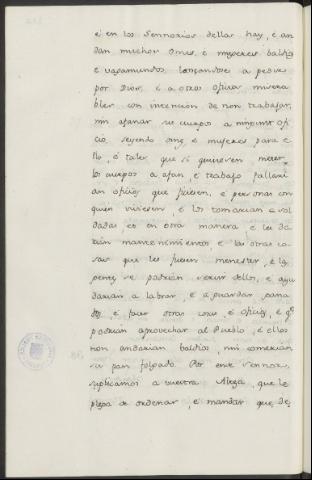 é en los Sennorios dellas hay, é an
dan muchos omes, é mugeres baldios
é vagamundos, lanzandose a pedir
por Dios, é a otros oficios misera
bles, con intencion de non trabajar,
nin afanar sus cuerpos a ningunt ofi
cio, seyendo omes é mugeres para e
llo, é tales que si quisiesen meter
los cuerpos a afan, é trabajo fallari
an oficios que ficiesen, é personas con
quien viviesen, é los tomarian a sol
dadas, et en otra manera, é les da
rian mantenimientos, é las otras co
sas que les fuesen menester, é las
gentes se podrian servir dellos, é ayu
darian a labrar, é a guardar gana
dos, é facer otras cosas, é oficios, é que
podrian aprovechar al Pueblo, é ellos
non andarian baldios, nin comerian
su pan folgado. Por ende Sennor,
suplicamos a vuestra Alteza, que le
plega de ordenar, é mandar que de